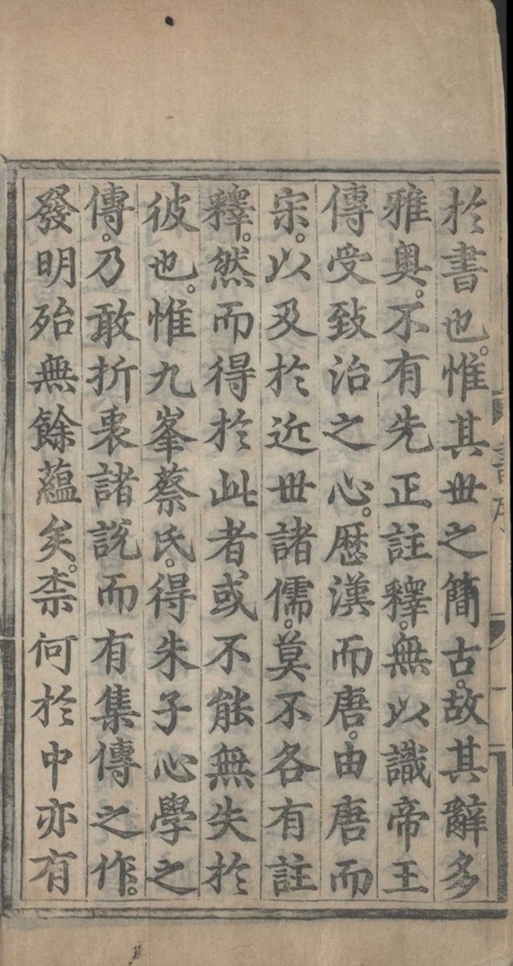 於書也。惟其世之簡古。故其辭多
雅奧。不有先正註釋。無以識帝王
傳受致治之心。歷漢而唐。由唐而
宋。以及於近世諸儒。莫不各有註
釋。然而得於此者或不能無失於
彼也。惟九峯蔡氏。得朱子心學之
傳。乃敢折衷諸說而有集傳之作。
發明殆無餘蘊矣。柰何於中亦有